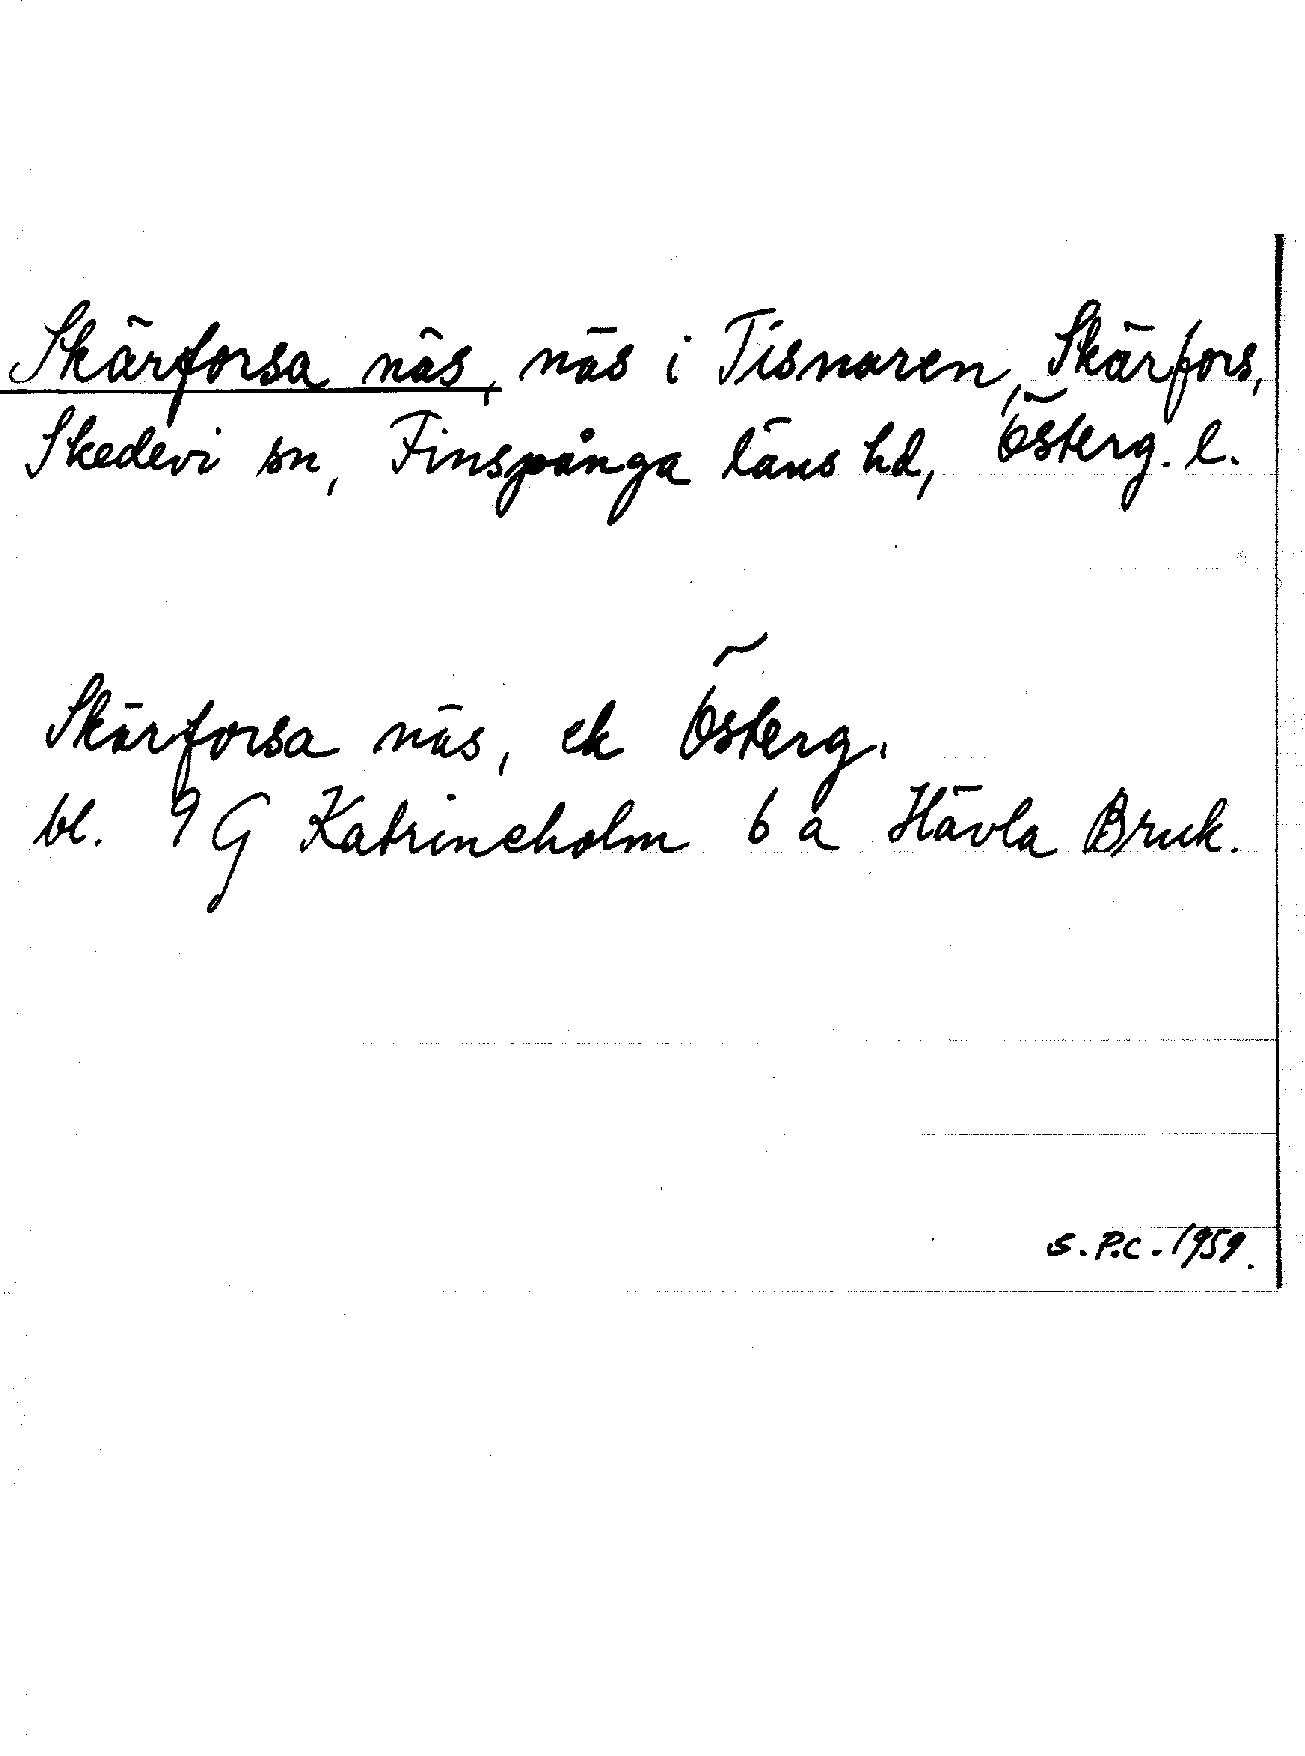 Skärforsa näs, näs i Tisnaren, Skärfors,
Skedevi sn, Finspånga läns hd, Österg. l.
Skärforsa näs, ek Österg.
bl. 9 G Katrineholm 6 a Hävla Bruk.
S. P.C. 1959.